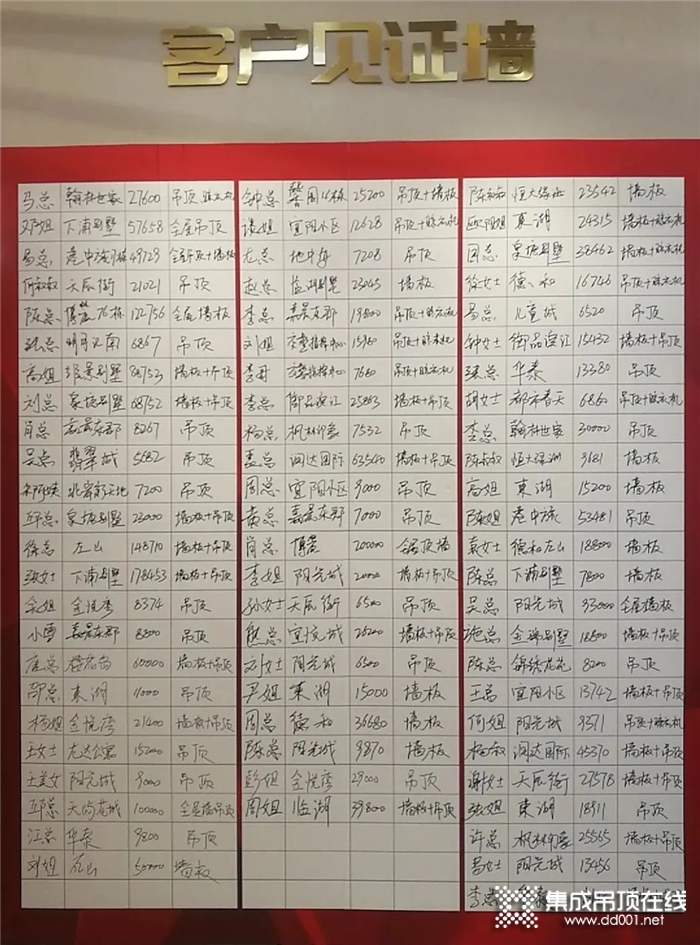 客户见证墙
马总 翰林世家 27600 吊顶
邓姐 下浦别墅 57658 全屋吊顶
易总 49729
何叔叔 天辰街 21021 吊顶
陈总 76栋 122756 全屋墙板
张总 6867 吊顶
高姐 别墅 88752 墙板+吊顶
刘总 别墅 68752 墙板+吊顶
肖总 嘉景东郡 8267 吊顶
吴总 翡翠城 5682 吊顶
7200 吊顶
邱总 别墅 23000 墙板+吊顶
徐总 左山 148710 墙板+吊顶
张女士 下浦别墅 178453 墙板+吊顶
余姐 金悦湾 8374 吊顶
小雪 嘉景东郡 8800 吊顶
唐总 60000 墙板+吊顶
邵总 東湖 11000 吊顶
杨姐 金悦湾 21400 墙板+吊顶
王女士 龙达公寓 15200 吊顶
王美女 阳光城 9000 吊顶
邱总 天尚龙城 100000
江总 华泰 9800 吊顶
刘姐 左山 50000 墙板
钟总 25200 吊顶+墙板
谌姐 宜阳小区 12628
龙总 地中海 7208 吊顶
赵总 临湖别墅 23045 墙板
李总 嘉景东郡 19800
刘姐 15960
李哥 7680
李总 御品滨江 25863 墙板+吊顶
杨总 枫林印象 7532 吊顶
孟总 润达国际 63540 墙板+吊顶
周总 宜阳小区 9000 吊顶
黄总 嘉景东郡 7000 吊顶
肖总 200000
李姐 阳光城 20000 墙板+吊顶
孙女士 天辰街 6500 吊顶
熊总 宜悦城 26200 墙板+吊顶
刘女士 阳光城 6500 吊顶
尹姐 東湖 15000 墙板
周总 德和 36680 墙板
陈总 阳光城 9870 墙板
彭姐 金悦湾 29000 吊顶
周姐 临湖 39800 墙板+吊顶
陈叔叔 恒大绿洲 23542 墙板
欧阳姐 東湖 24315
周总 别墅 38462
徐女士 德和 16746
易总 儿童城 6520 吊顶
钟女士 御品滨江 15432 墙板+吊顶
张总 华泰 13380 吊顶
胡女士 都市春天 6860
李总 翰林世家 30000 吊顶
陈叔叔 恒大绿洲 9681 墙板
高姐 東湖 15200 墙板
陈姐 港中旅 53481 吊顶
袁女士 德和左山 18800 墙板
陈总 下浦别墅 7800 墙板
吴总 阳光城 93000 全屋墙板
施总 别墅 18500 墙板+吊顶
陈总 锦绣龙苑 8200 吊顶
王总 宜阳小区 13742 墙板+吊顶
何姐 阳光城 9371
杨叔 润达国际 45370 墙板+吊顶
谢女士 天辰街 27578 墙板+吊顶
张姐 東湖 18911 吊顶
许总 枫林印象 25565 墙板+吊顶
吕女士 阳光城 13456 吊顶
李总
集成吊顶在线
www.dd001.net